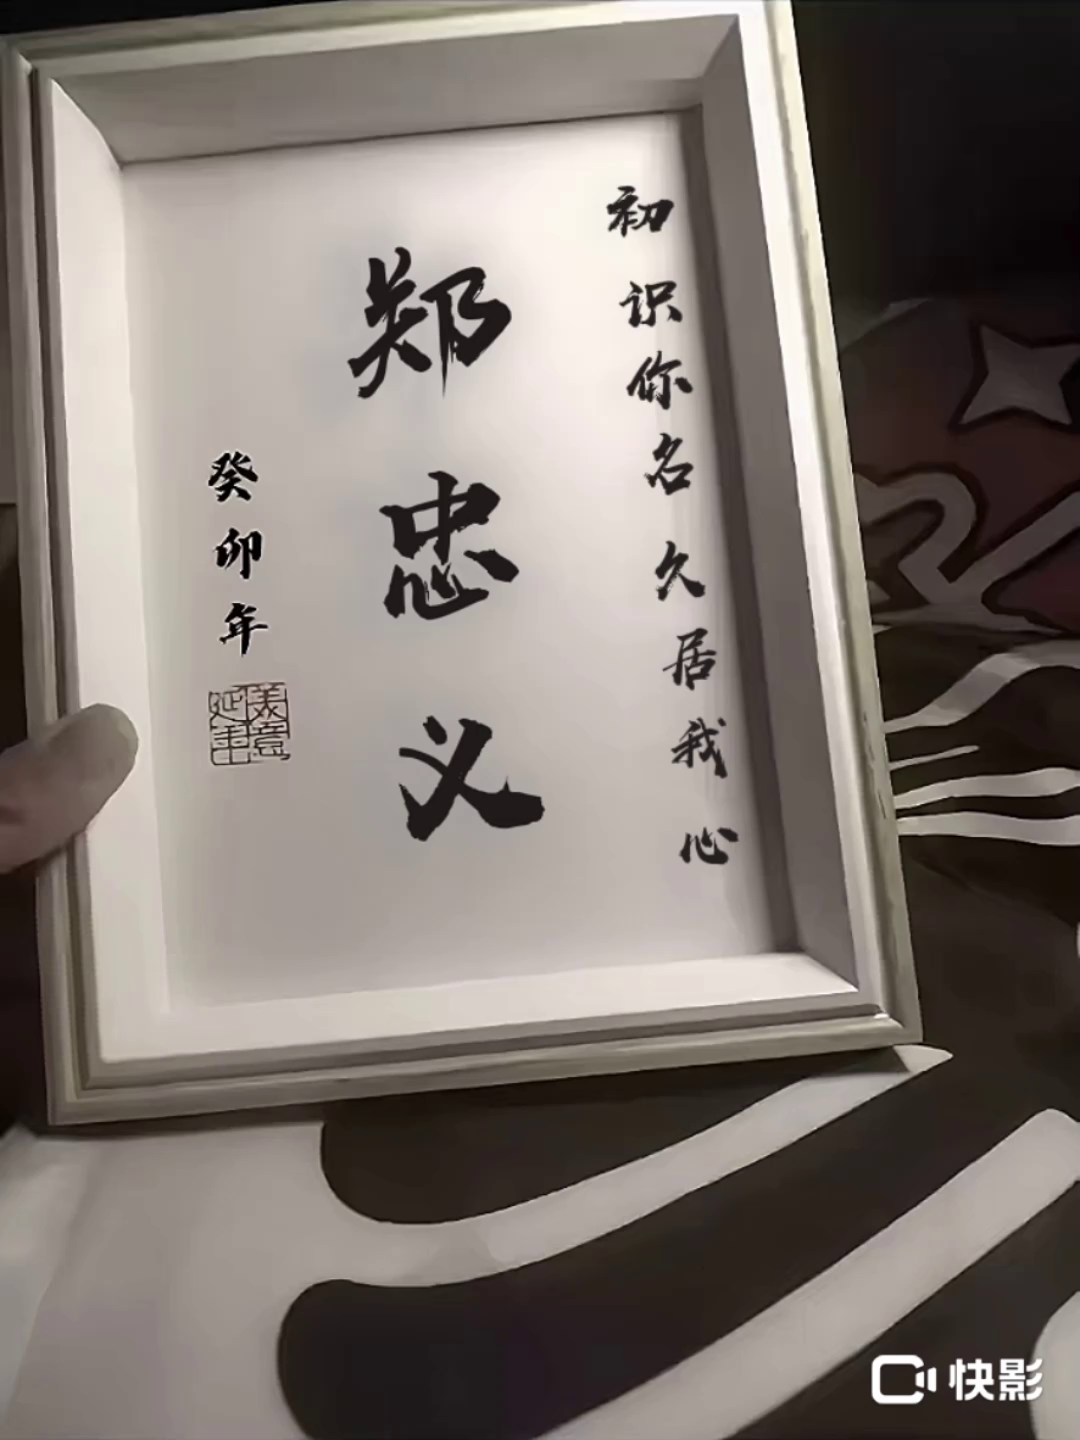 初识你名久居我心
郑忠义
癸卯年
美意延年
快影